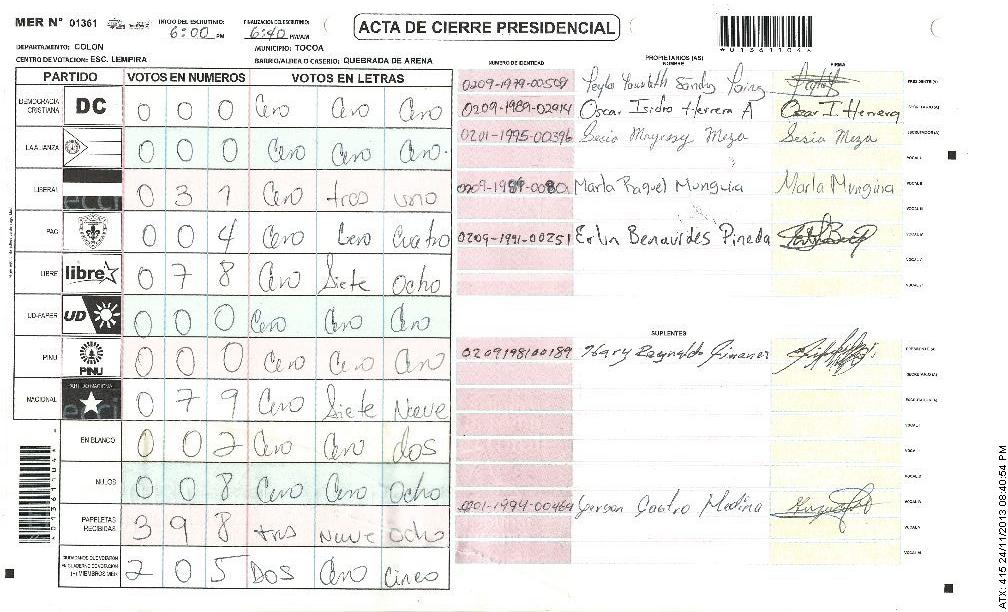 MER N° 01361
INICIO DEL ESCRUTINIO: 6:00 PM
FINALIZACION DEL ESCRUTINIO: 6:40 PM/AM
ACTA DE CIERRE PRESIDENCIAL
*01361104*
DEPARTAMENTO: COLON
MUNICIPIO: TOCOA
CENTRO DE VOTACION: ESC. LEMPIRA
BARRIO/ALDEA O CASERIO: QUEBRADA DE ARENA
PARTIDO VOTOS EN NUMEROS VOTOS EN LETRAS
DEMOCRACIA CRISTIANA DC 0 0 0 Cero Cero Cero
LA ALIANZA 0 0 0 Cero Cero Cero.
LIBERAL 0 3 1 Cero tres uno
PAC 0 0 4 Cero Cero Cuatro
LIBRE libre 0 7 8 Cero Siete Ocho
UD-FAPER UD 0 0 0 Cero Cero Cero
PINU PINU 0 0 0 Cero Cero Cero
NACIONAL PARTIDO NACIONAL 0 7 9 Cero Siete Nueve
EN BLANCO 0 0 2 Cero Cero dos
NULOS 0 0 8 Cero Cero Ocho
PAPELETAS RECIBIDAS 3 9 8 tres Nueve Ocho
CIUDADANOS QUE VOTARON EN CUADERNO DE VOTACION (+) MIEMBROS MER 2 0 5 Dos Cero Cinco
NUMERO DE IDENTIDAD
PROPIETARIOS (AS)
NOMBRE
FIRMA
0209-1979-00509 Sandy PRESIDENTE (A)
0209-1989-02914 Oscar Isidro Herrera A Oscar I Herrera SECRETARIO (A)
0201-1995-00396 Mayreny Meza Sesia Meza ESCRUTADOR (A)
VOCAL I
Marla Raquel Munguia Marla Munguia VOCAL II
VOCAL III
0209-1991-00251 Erlin Benavides Pineda VOCAL IV
VOCAL V
VOCAL VI
SUPLENTES
0209198100189 Reynaldo Jimenez PRESIDENTE (A)
SECRETARIO (A)
ESCRUTADOR (A)
VOCAL I
VOCAL II
VOCAL III
0201-1994-00464 Gerson Castro Medina VOCAL IV
VOCAL V
VOCAL VI
ATX: 415 24/11/2013 08:40:54 PM